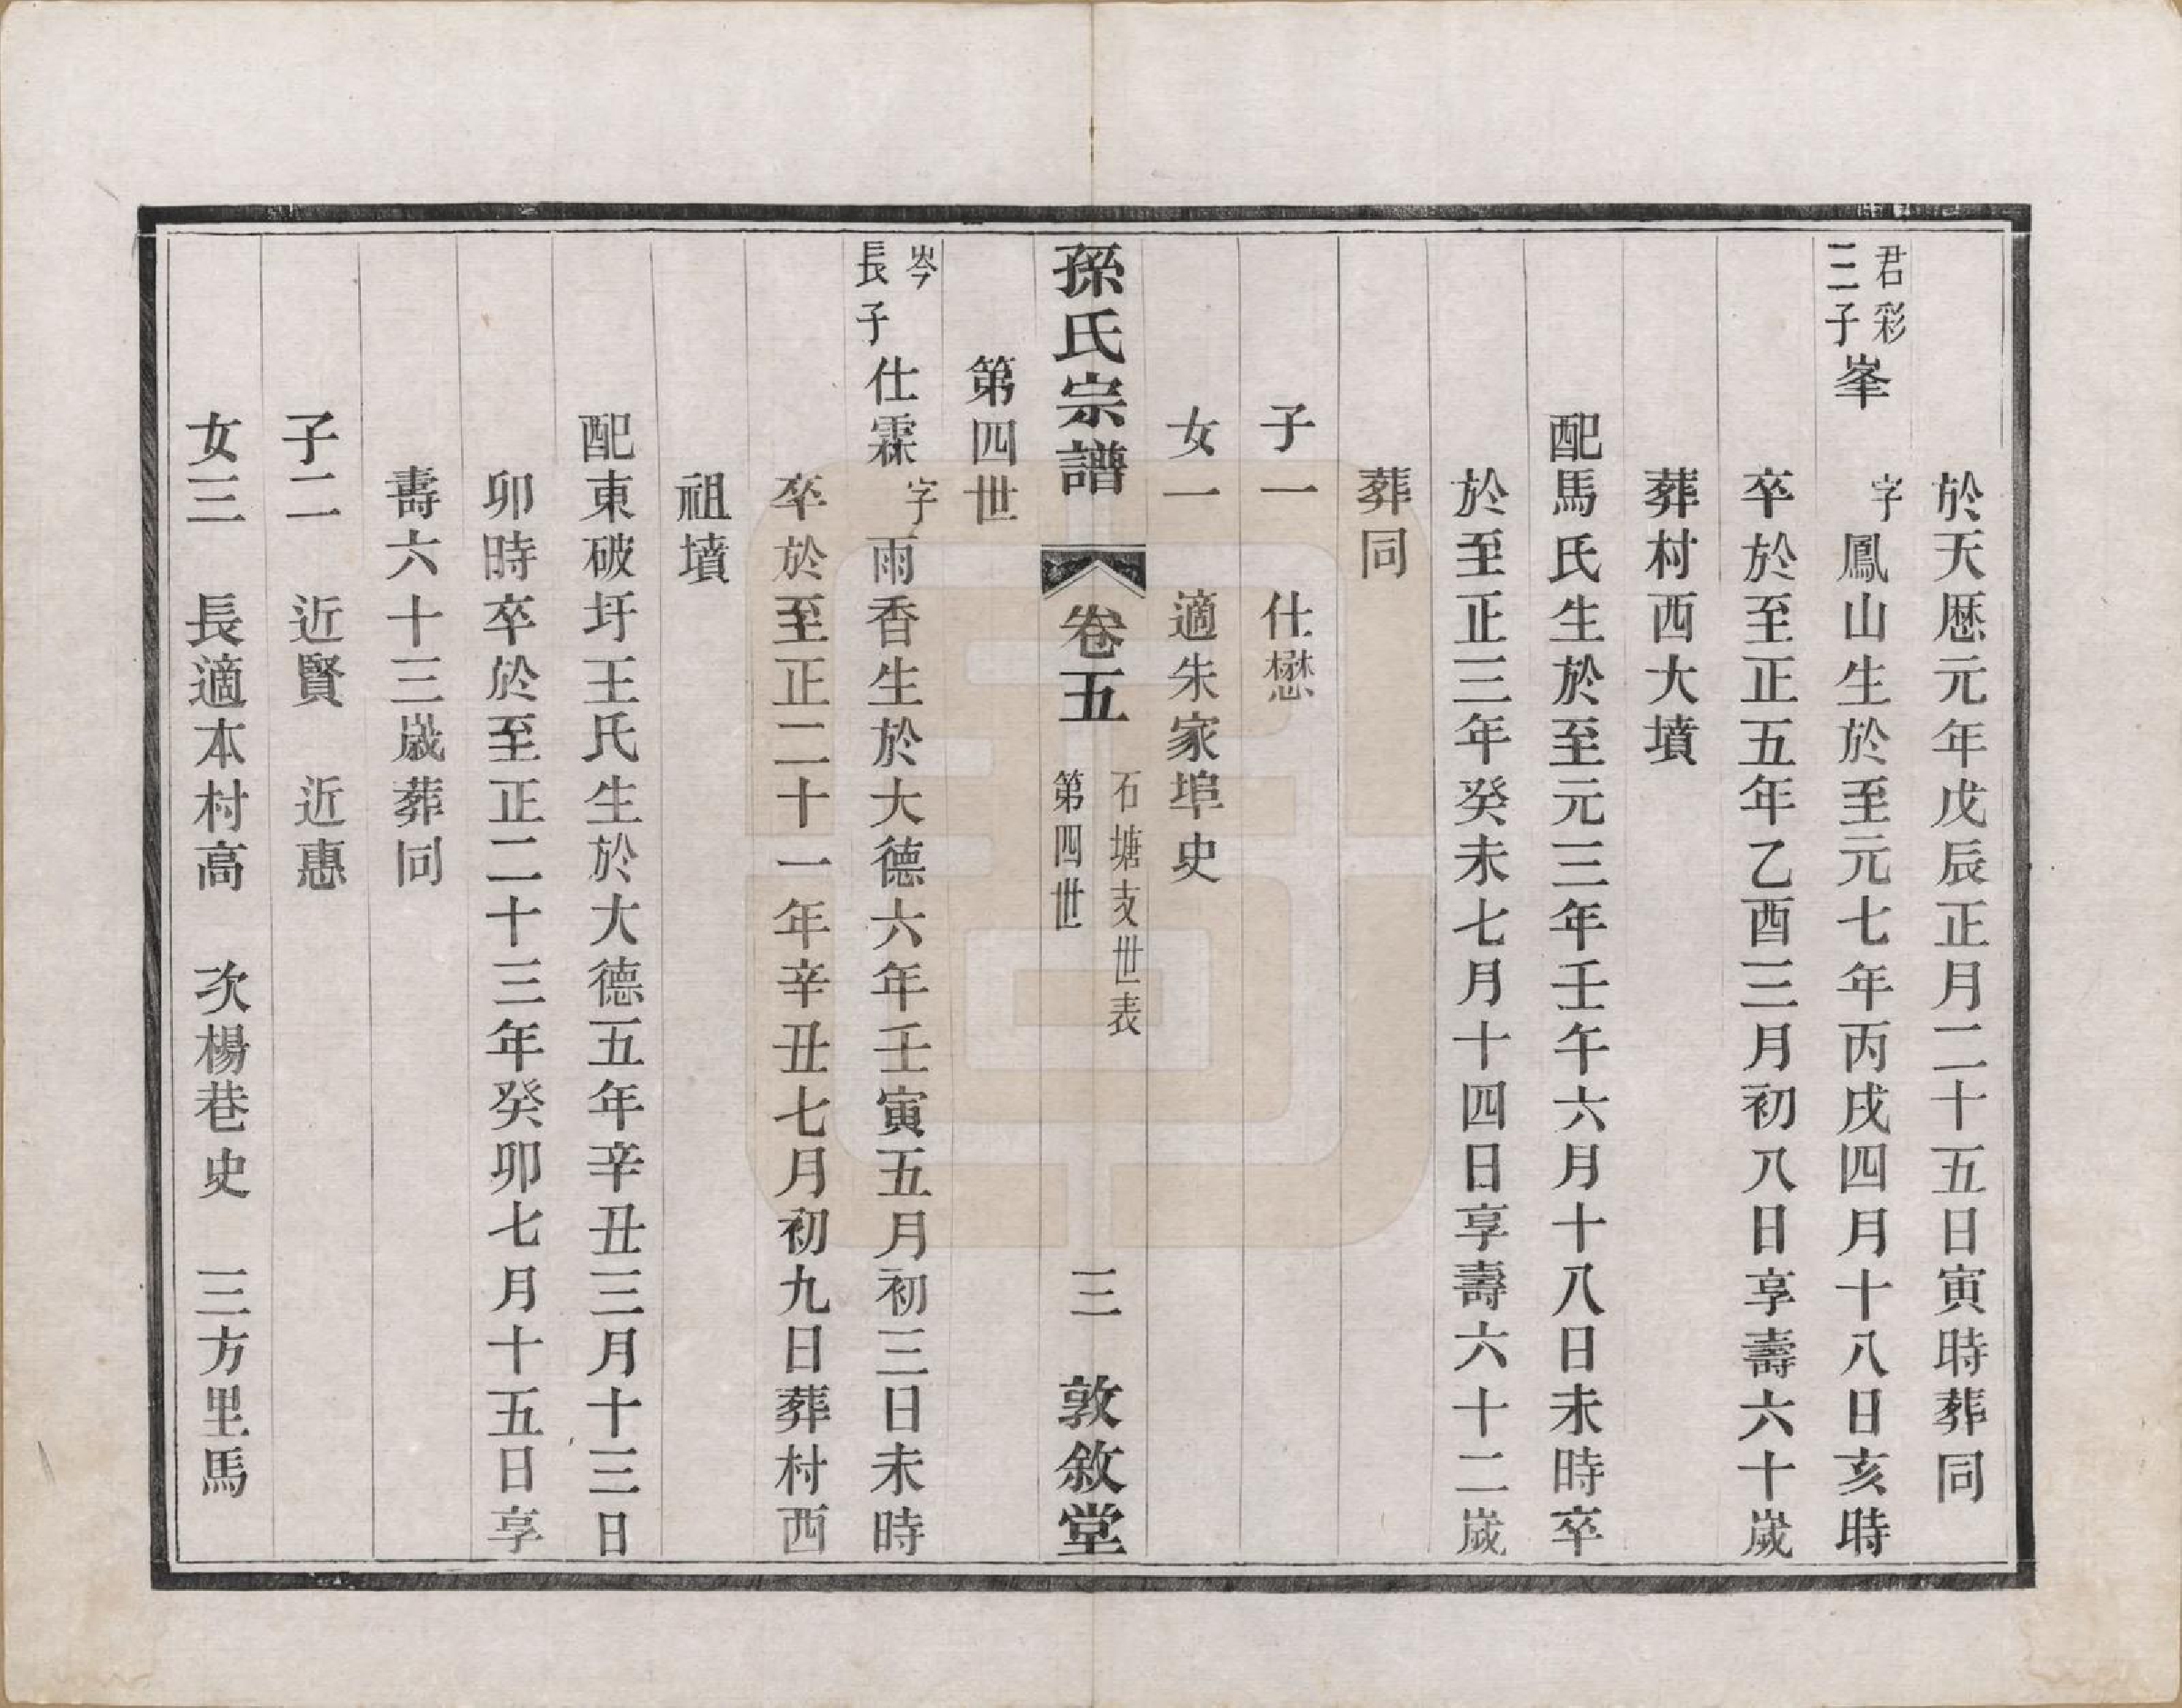 於天厯元年戊辰正月二十五日寅時葬同
君彩三子 峯 字鳳山生於至元七年丙戌四月十八日亥時
卒於至正五年乙酉三月初八日享壽六十歲
葬村西大墳
配馬氏生於至元三年壬午六月十八日未時卒
於至正三年癸未七月十四日享壽六十二歲
葬同
子一 仕懋
女一 適朱家埠史
孫氏宗譜 卷五 石塘支世表 第四世 三 敦敘堂
第四世
岑長子 仕霖 字雨香生於大德六年壬寅五月初三日未時
卒於至正二十一年辛丑七月初九日葬村西
祖墳
配東破圩王氏生於大德五年辛丑三月十三日
卯時卒於至正二十三年癸卯七月十五日享
壽六十三歲葬同
子二 近賢 近惠
女三 長適本村高 次楊巷史 三方里馬